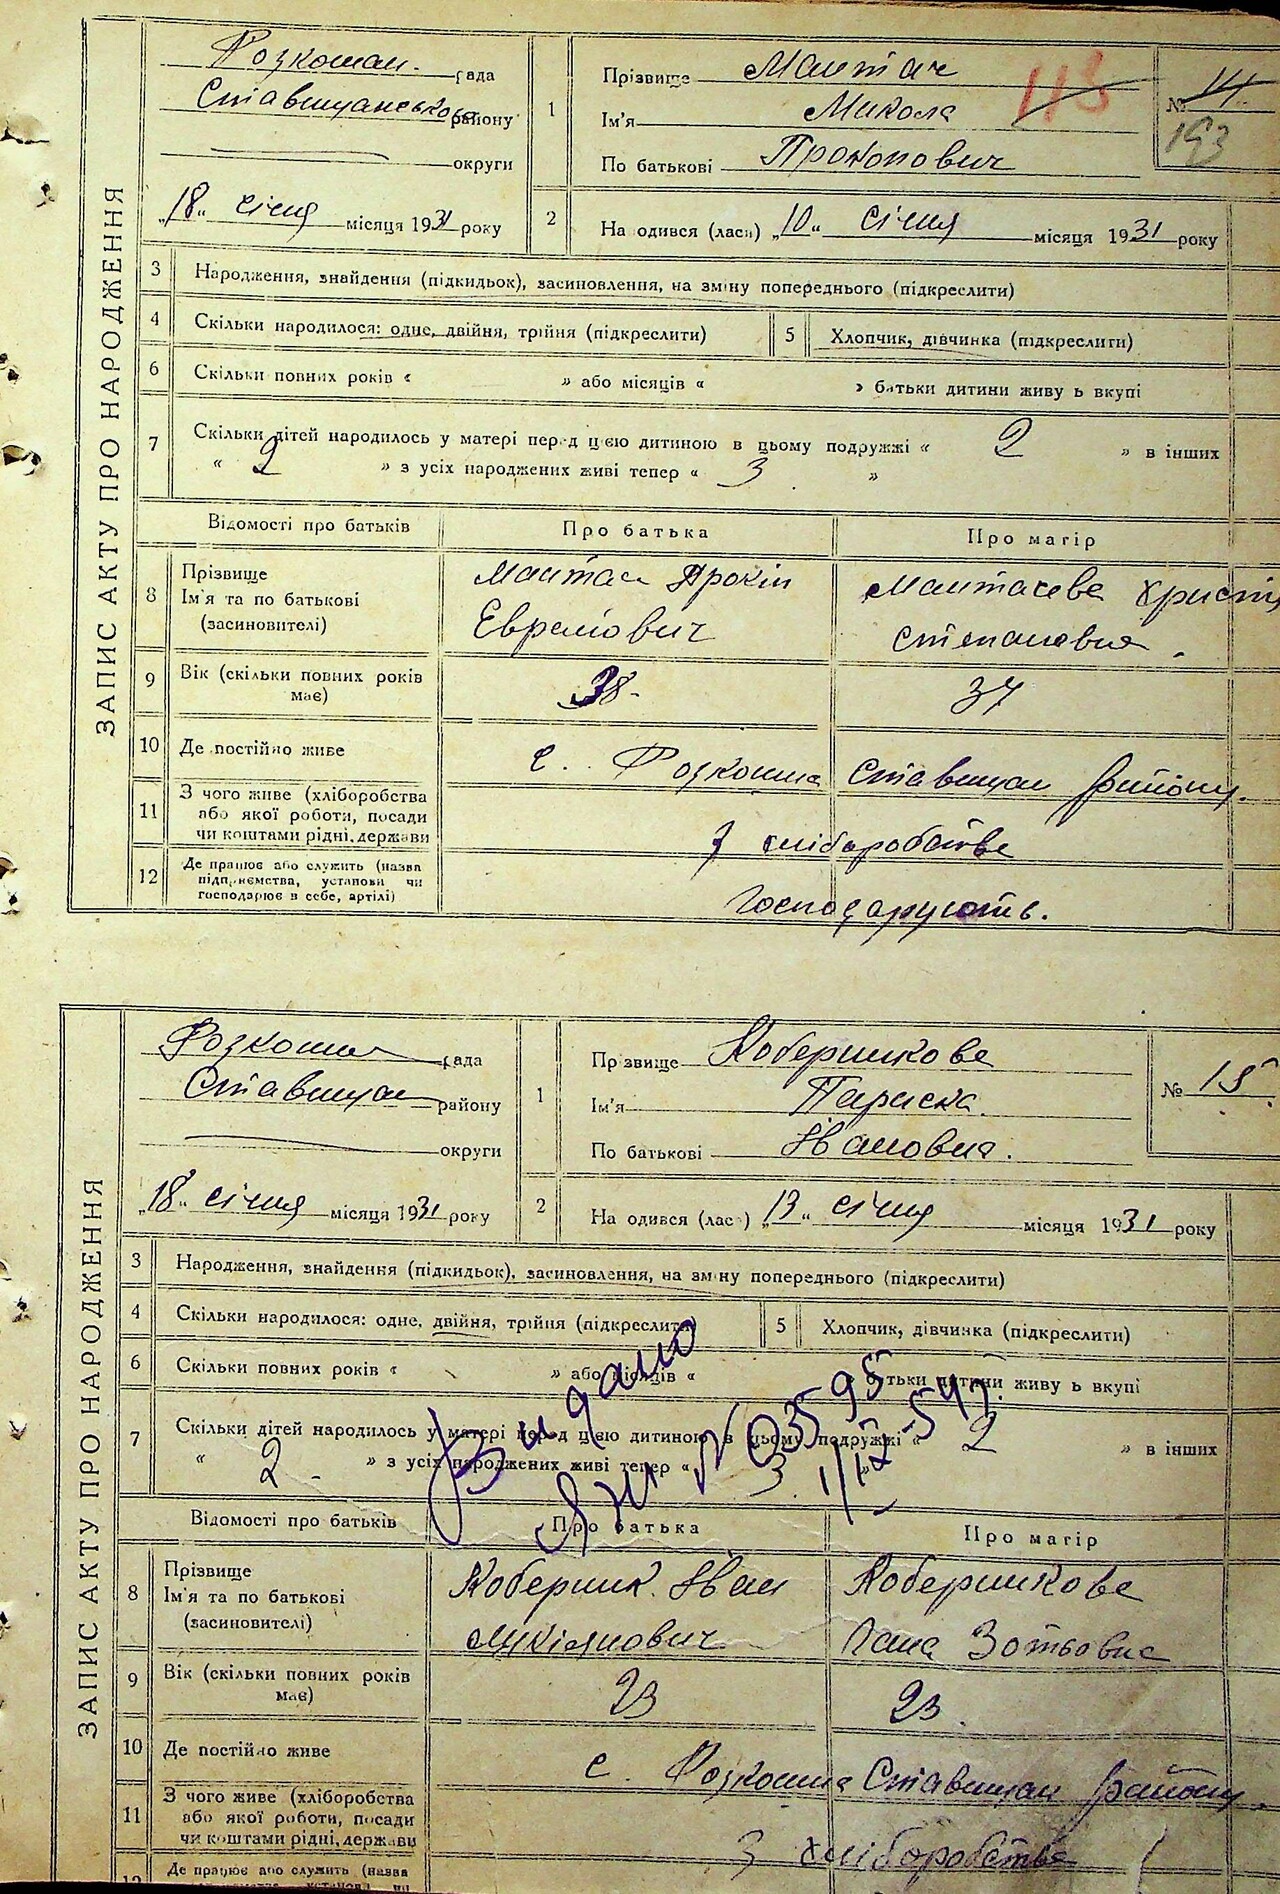 ЗАПИС АКТУ ПРО НАРОДЖЕННЯ
Розкошан. рада
Ставищанського району
округи
"18" січня місяця 1931 року
1
Прізвище Маштач
Ім'я Микола
По батькові Прокопович
113
№ 14
193
2
На одився (лася) "10" січня місяця 1931 року
3 Народження, знайдення (підкидьок), засиновлення, на зміну попереднього (підкреслити)
4 Скільки народилося: одне, двійня, трійня (підкреслити)
5 Хлопчик, дівчинка (підкреслити)
6 Скільки повних років « » або місяців « » батьки дитини живуть вкупі
7 Скільки дітей народилось у матері перед цією дитиною в цьому подружжі « 2 » в інших
« 2 » з усіх народжених живі тепер « 3 »
Відомості про батьків Про батька Про матір
8 Прізвище
Ім'я та по батькові
(засиновителі)
Прокіп
Христя
Степановна.
9 Вік (скільки повних років має) 38- 37
10 Де постійно живе с. Розкошна Ставищан району.
11 З чого живе (хліборобства
або якої роботи, посади
чи коштами рідні, держави
З хліборобства
12 Де працює або служить (назва
підприємства, установи чи
господарює в себе, артілі)
Господарують.
ЗАПИС АКТУ ПРО НАРОДЖЕННЯ
Розкошан рада
Ставищан району
округи
"18" січня місяця 1931 року
1
Прізвище Коберникова
Ім'я Париска.
По батькові Івановна.
№ 15
2
На одився (лась) "13" січня місяця 1931 року
3 Народження, знайдення (підкидьок), засиновлення, на зміну попереднього (підкреслити)
4 Скільки народилося: одне, двійня, трійня (підкреслити)
5 Хлопчик, дівчинка (підкреслити)
6 Скільки повних років « » або місяців « батьки дитини живуть вкупі
7 Скільки дітей народилось у матері перед цією дитиною в цьому подружжі « 2 » в інших
« 2 » з усіх народжених живі тепер « 3
Видано
№ 03595
Відомості про батьків Про батька Про матір
8 Прізвище
Ім'я та по батькові
(засиновителі)
Коберник Іван
Коберникова
Ганна Зотьовна
9 Вік (скільки повних років має) 23 23.
10 Де постійно живе с. Розкошна Ставищан району.
11 З чого живе (хліборобства
або якої роботи, посади
чи коштами рідні, держави
З хліборобства
12 Де працює або служить (назва